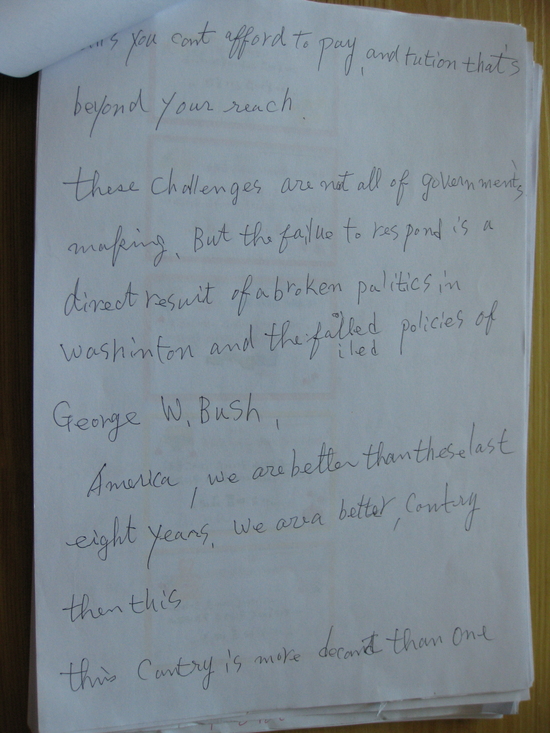 you cont afford to pay, and tution that's
beyond your reach.
these challenges are not all of government's
making. But the failue to respond is a
direct resuit of a broken palitics in
washinton and the falled policies of
iled
George W. Bush,
America, we are better than these last
eight years. we area better, Cantry
then this
this Cantry is more decant than one